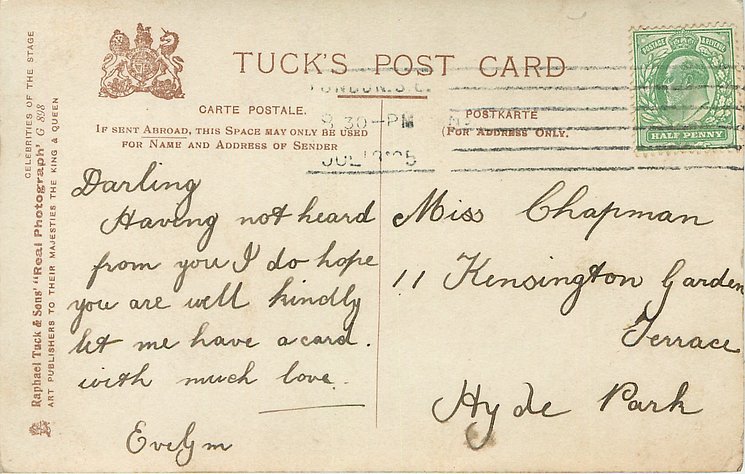 TUCK'S POST CARD
CARTE POSTALE.
IF SENT ABROAD, THIS SPACE MAY ONLY BE USED
FOR NAME AND ADDRESS OF SENDER
POSTKARTE
(FOR ADDRESS ONLY.
POSTAGE REVENUE
HALF PENNY
LONDON. S.E.
8 30-PM
JUL
CELEBRITIES OF THE STAGE
Raphael Tuck & Sons' "Real Photograph" G 898
ART PUBLISHERS TO THEIR MAJESTIES THE KING & QUEEN
Darling
Having not heard
from you I do hope
you are well kindly
let me have a card.
with much love.
Evelyn
Miss Chapman
11 Kensington Garden
Terrace
Hyde Park